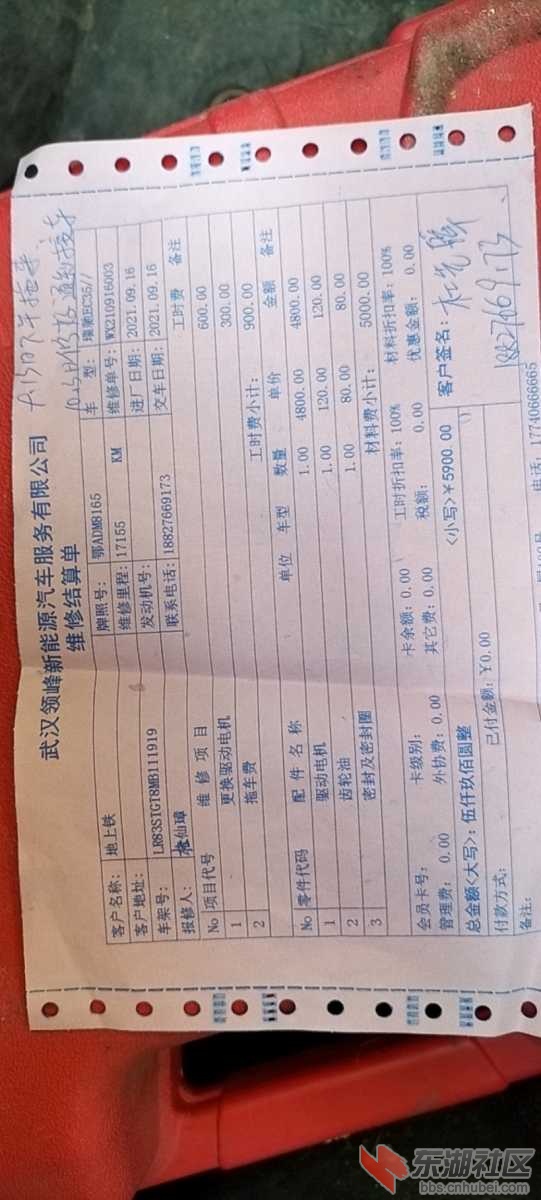 武汉领峰新能源汽车服务有限公司
维修结算单
客户名称: 地上铁 牌照号: 鄂ADM8165 车 型: 瑞驰EC35//
客户地址: 维修里程: 17155 KM 维修单号: WX210916003
车架号: LR83STGT8MB111919 发动机号: 进厂日期: 2021.09.16
报修人: 仙璋 联系电话: 18827669173 交车日期: 2021.09.16
No 项目代号 维 修 项 目 工时费 备注
1 更换驱动电机 600.00
2 拖车费 300.00
工时费小计: 900.00
No 零件代码 配 件 名 称 单位 车型 数量 单价 金额 备注
1 驱动电机 1.00 4800.00 4800.00
2 齿轮油 1.00 120.00 120.00
3 密封及密封圈 1.00 80.00 80.00
材料费小计: 5000.00
会员卡号: 卡级别: 卡余额: 0.00 工时折扣率: 100% 材料折扣率: 100%
管理费: 0.00 外协费: 0.00 其它费: 0.00 税额: 0.00 优惠金额: 0.00
总金额<大写>: 伍仟玖佰圆整 <小写>¥5900.00 客户签名:
付款方式: 已付金额: ¥0.00 18827669173
备注:
电话: 17740666665
东湖社区
bbs.cnhubei.com